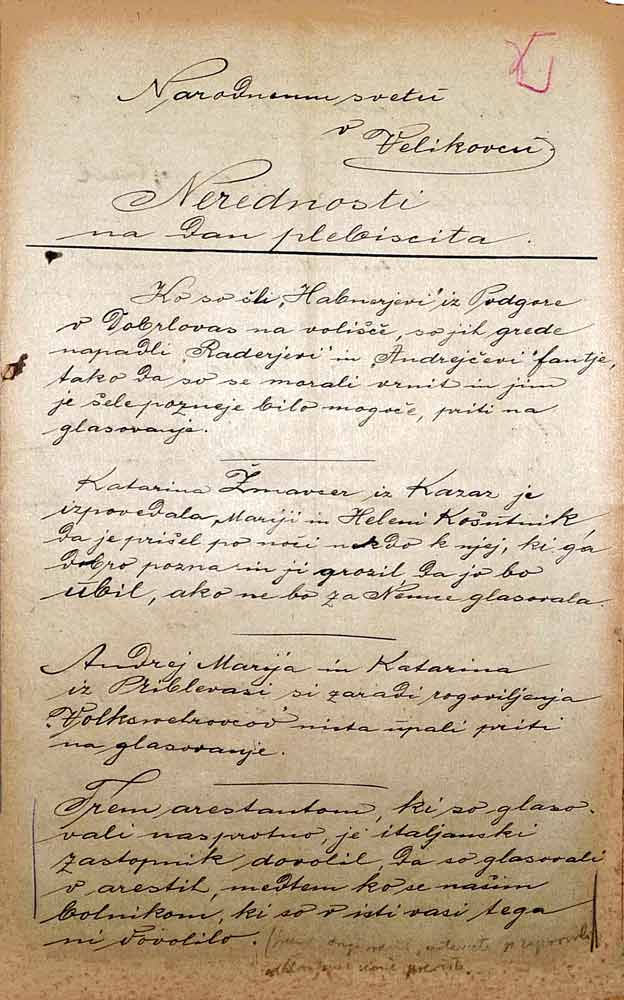 Narodnemu svetu
v Velikovcu.
Nerednosti
na dan plebiscita.
Ko so šli „Habnerjevi" iz Podgore
v Dobrlovas na volišče, so jih grede
napadli „Raderjevi" in „Andrejčevi" fantje,
tako da so se morali vrnit in jim
je šele pozneje bilo mogoče, priti na
glasovanje.
Katarina Žmavcer iz Kazaz je
izpovedala, Mariji in Heleni Košutnik,
da je prišel po noči nekdo k njej, ki ga
dobro pozna in ji grozil, da jo bo
ubil, ako ne bo za Nemce glasovala.
Andrej Marija in Katarina
iz Priblevasi si zaradi rogoviljenja
„Volkswehrovcov" nista upali priti
na glasovanje.
Trem arestantom, ki so glaso-
vali nasprotno, je italjanski
zastopnik dovolil, da so glasovali
v arestih, medtem ko se našim
bolnikom, ki so v isti vasi tega
ni dovolilo.